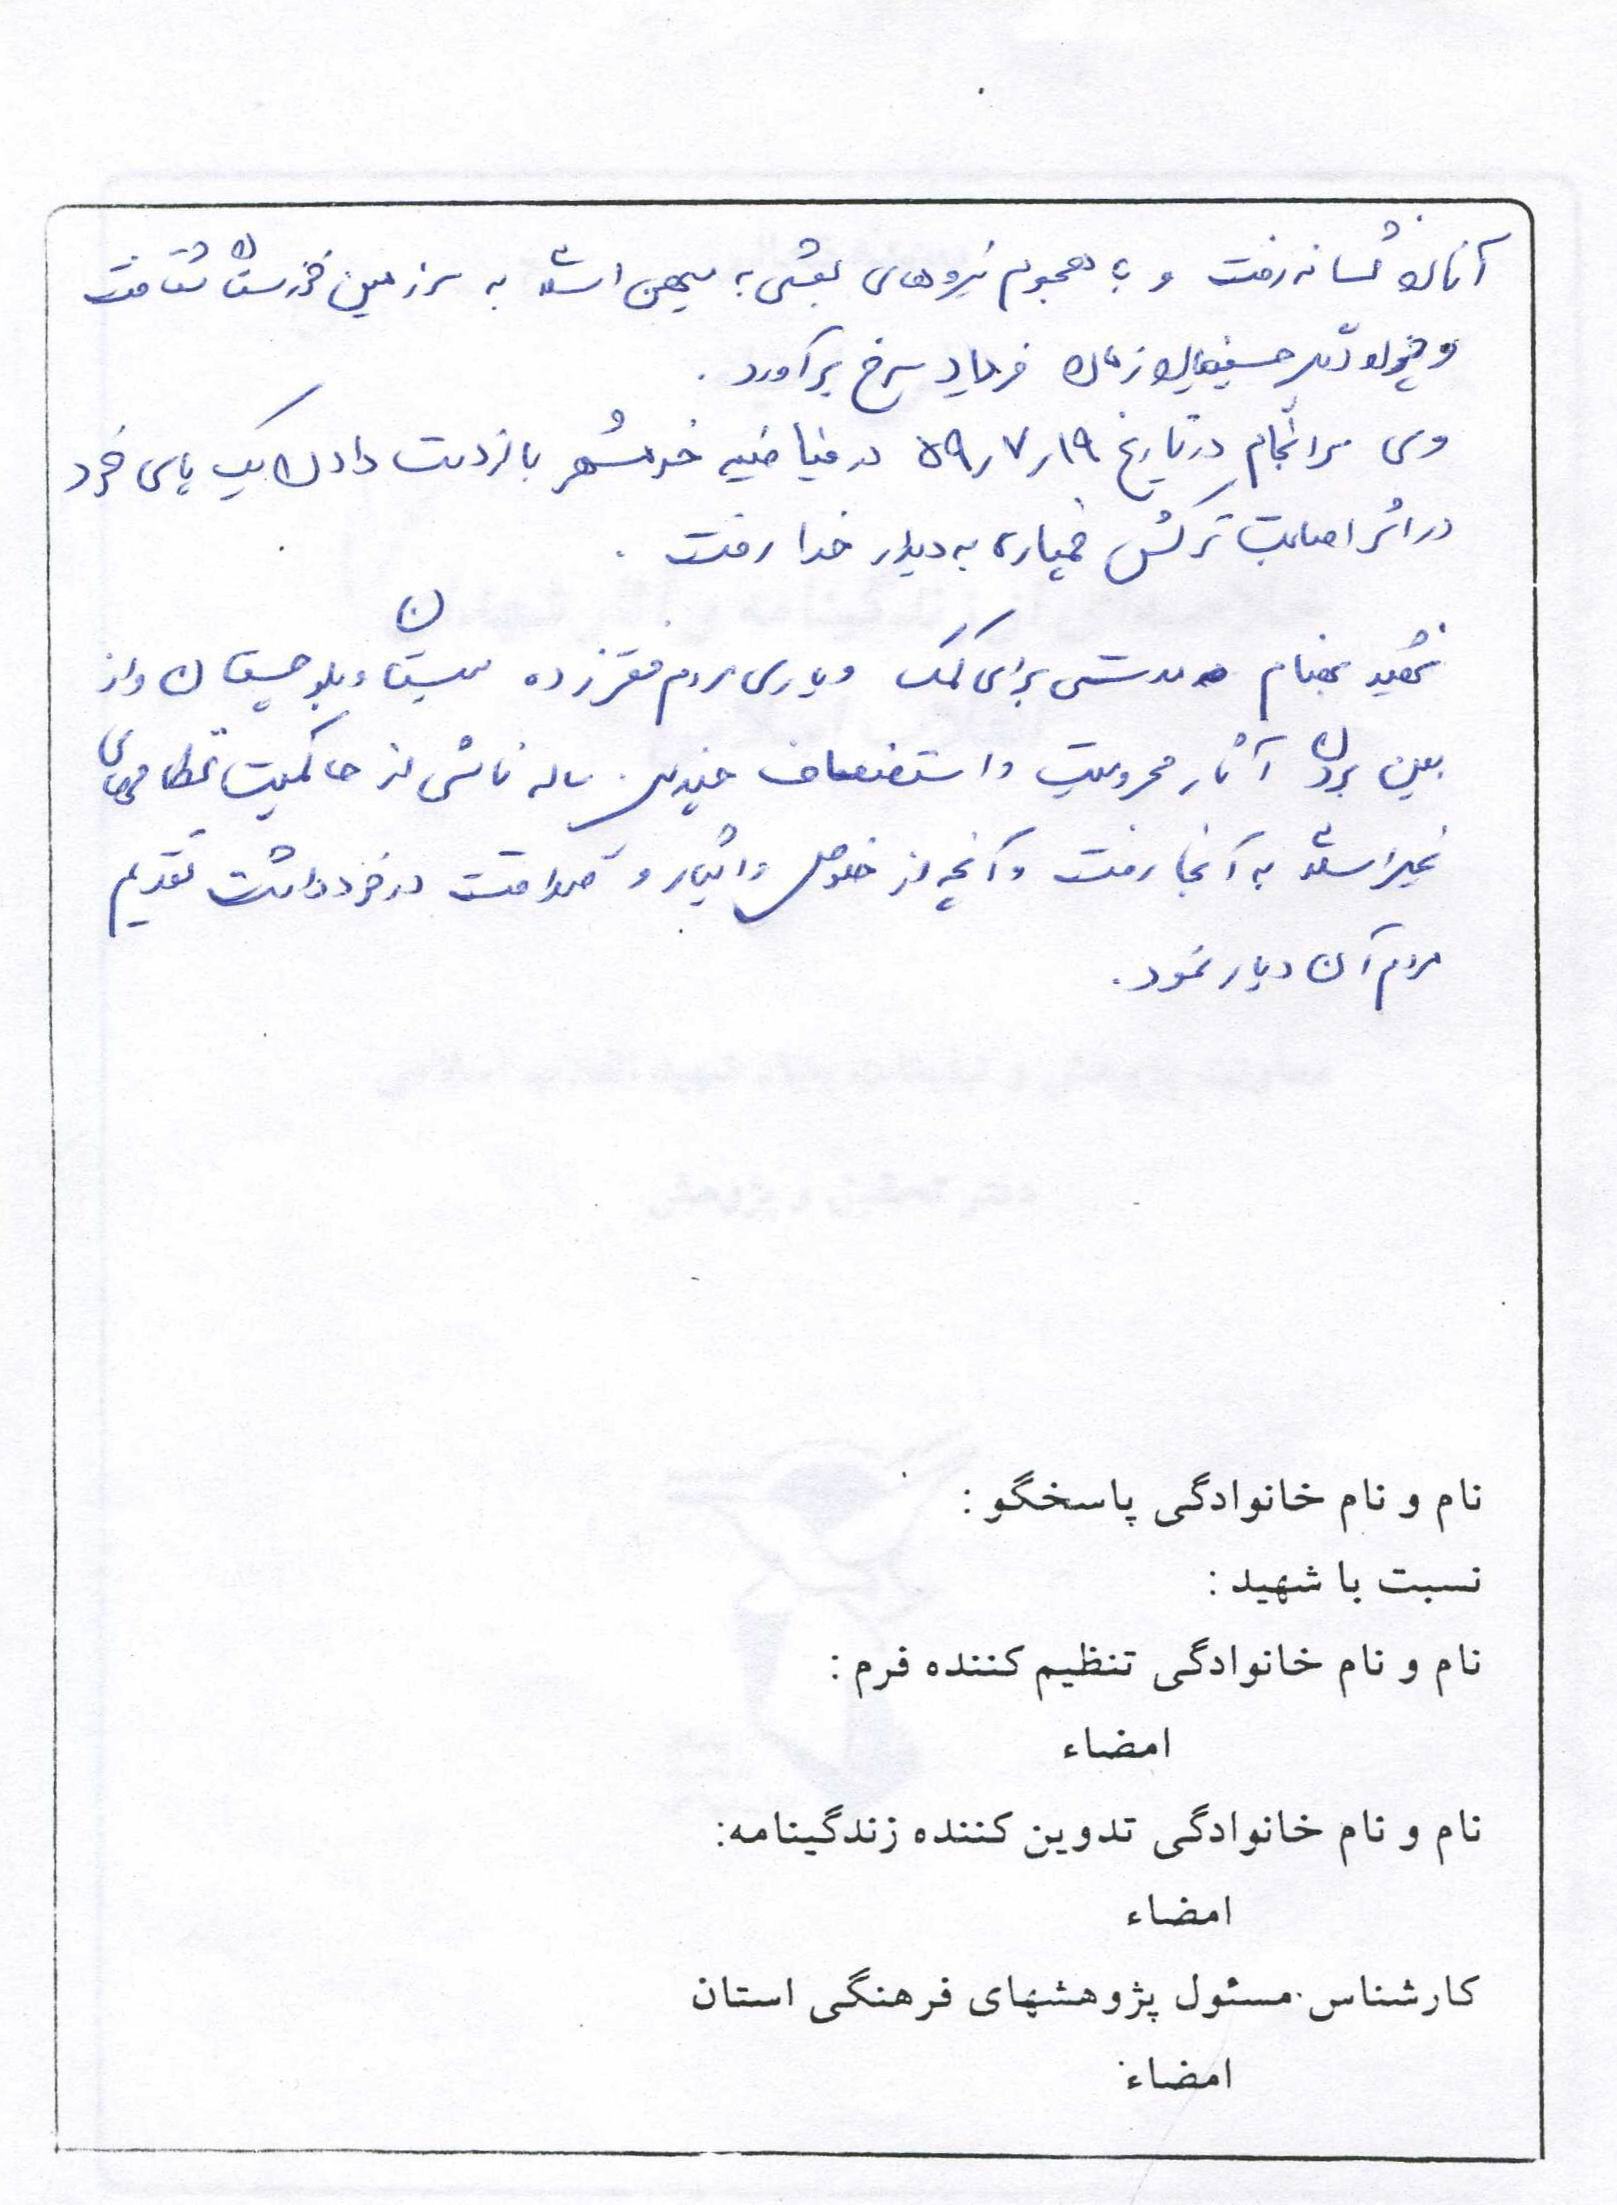 آنان شتافته رفت و با هجوم نیروهای بعثی به میهن اسلامی به سرزمین خوزستان شتافت
و حسینیان زمان فریاد سرخ برآورد .
وی سرانجام در تاریخ ۵۹٫۷٫۱۹ در فیاضیه خرمشهر با از دست دادن یک پای خود
در اثر اصابت ترکش خمپاره به دیدار خدا رفت .
شهید بهنام مدتی برای کمک و یاری مردم فقرزده سیستان و بلوچستان و از
بین بردن آثار محرومیت و استضعاف چندین ساله ناشی از حاکمیت نظامهای
غیراسلامی به آنجا رفت و آنچه از خلوص و ایثار و صداقت در خود داشت تقدیم
مردم آن دیار نمود .
نام و نام خانوادگی پاسخگو :
نسبت با شهید :
نام و نام خانوادگی تنظیم کننده فرم :
امضاء
نام و نام خانوادگی تدوین کننده زندگینامه:
امضاء
کارشناس مسئول پژوهشهای فرهنگی استان
امضاء